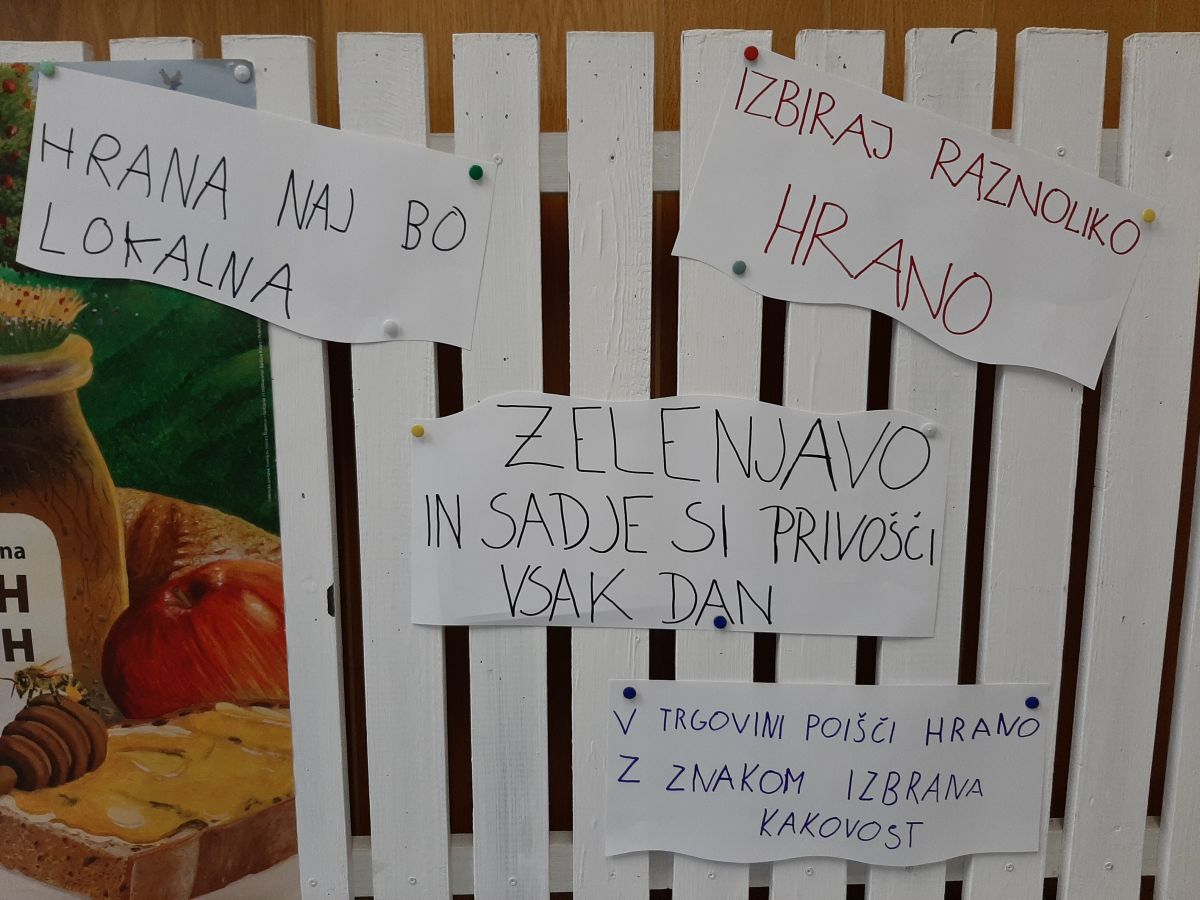 HRANA NAJ BO
LOKALNA
IZBIRAJ RAZNOLIKO
HRANO
ZELENJAVO
IN SADJE SI PRIVOŠČI
VSAK DAN
V TRGOVINI POIŠČI HRANO
Z ZNAKOM IZBRANA
KAKOVOST
na
H
H